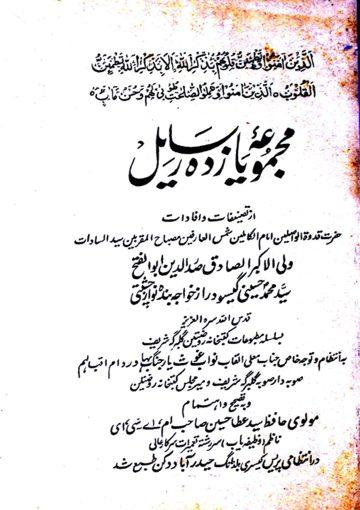 الَّذِينَ آمَنُوا وَتَطْمَئِنُّ قُلُوبُهُمْ بِذِكْرِ اللَّهِ أَلَا بِذِكْرِ اللَّهِ تَطْمَئِنُّ
الْقُلُوبُ ه الَّذِينَ آمَنُوا وَعَمِلُوا الصَّالِحَاتِ طُوبَى لَهُمْ وَحُسْنُ مَآبٍ ه
مجموعۂ یازدہ رسایل
از تصنیفات و افادات
حضرت قدوۃ الواصلین امام الکاملین شمس العارفین مصباح المقربین سید السادات
ولی الاکبر الصادق صدر الدین ابو الفتح
سید محمد حسینی گیسو دراز خواجہ بندہ نواز چشتی
قدس اللہ سرہ العزیز
بسلسلہ مطبوعات کتبخانہ روضتین گلبرگہ شریف
بہ انتظام و توجہ خاص جناب معلی القاب نواب غوث یار جنگ بہادر دام اقبالہم
صوبہ دار صوبہ گلبرگہ شریف و میر مجلس کتبخانہ روضتین
و بتصحیح و اہتمام
مولوی حافظ سید عطا حسین صاحب ام، اے سی ای
ناظم وظیفہ یاب سررشتہ تعمیرات سرکار عالی
در انتظامی پریس کیسری بلڈنگ حیدرآباد دکن طبع شد